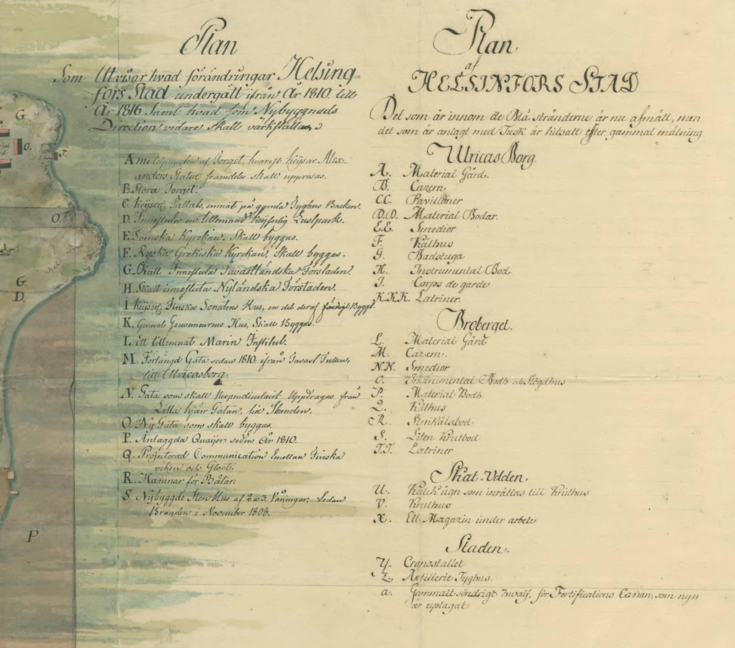 Plan
Som Utvisar hvad förändringar Helsing-
fors Stad undergått ifrån År 1810 till
År 1816 samt hvad som Nybyggnads
Direction vidare Skall värkställa
A af Torget, hvarest
anders Statue framdeles Skall uppresas.
B. Stora Torget.
C. Pallats, på gamla Tyghus Backen.
D. en tillernnad Lustpark.
E. Kyrkan, Skall byggas.
F. Ryska Grekiska Kyrkan, Skall byggas.
G. Skall Tavastländska Förstaden.
H. Skall Nyländska Förstaden.
I. Finska Senatens Hus, en del deraf färdigt Byggt
K. Hus, Skall Byggas.
L. Ett tillernnat Marin Institut.
M. Förlängd Gata sedan 1810, ifrån Tullen,
till Ulricasborg.
N. Gata som skall Uppdragas från
Lilla Gatan, till
O. Ny Gata som skall byggas.
P. Anlaggda Quaijer sedan År 1810.
Q. Projecterad Communication Emellan Finska
viken och Gloet.
R. Hamnar för Båtar.
S. Nybyggde Sten Hus af 2 a 3 Våningar Sedan
Branden i November 1808.
Plan
af
HELSINFORS STAD
Det som är innom de Blå stränderne är nu afmätt, men
det som är anlagt med Tusk är tilsatt efter gammal mätning
Ulricas Borg.
A. Material Gård.
B. Cazern.
CC. Pavillioner
D.D. Material Bodar.
E.E. Smedior
F. Kålhus
G. Badstuga
H. Instrumental Bod.
I. Corps de garde
K.K.K. Latriner.
Broberget.
L. Material Gård
M. Cazern.
N.N. Smedior
O. Instrumental Bodh och Slögdhus
P. Material Bodh
Q. Kålhus
R.
S. Liten Krutbod
T.T. Latriner
Skat-Udden.
U. Kalk Ugn som inrättas till Kruthus
V. Kruthus
X. Ett Magazin under arbete
Staden.
Y. Cronostallet
Z. Artillerie Tyghus.
a. Gammalt söndrigt hvalf, för Fortifications Cassan, som nyn
är uplagat
G
O.
O
G
D
P